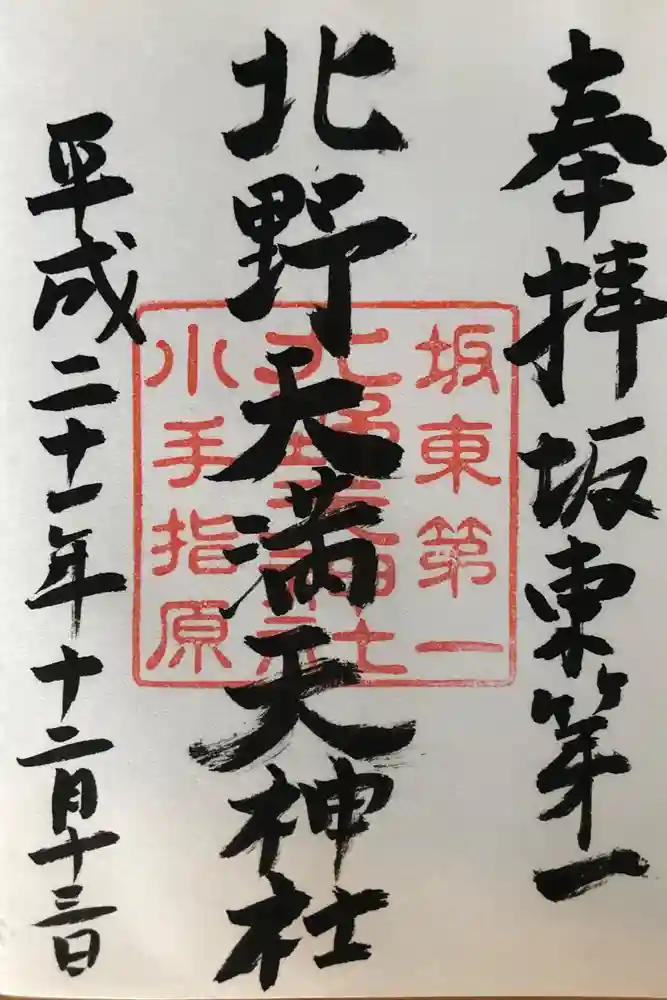 奉拝坂東第一
北野天満天神社
平成二十一年十二月十三日
坂東第一
北野天神社
小手指原